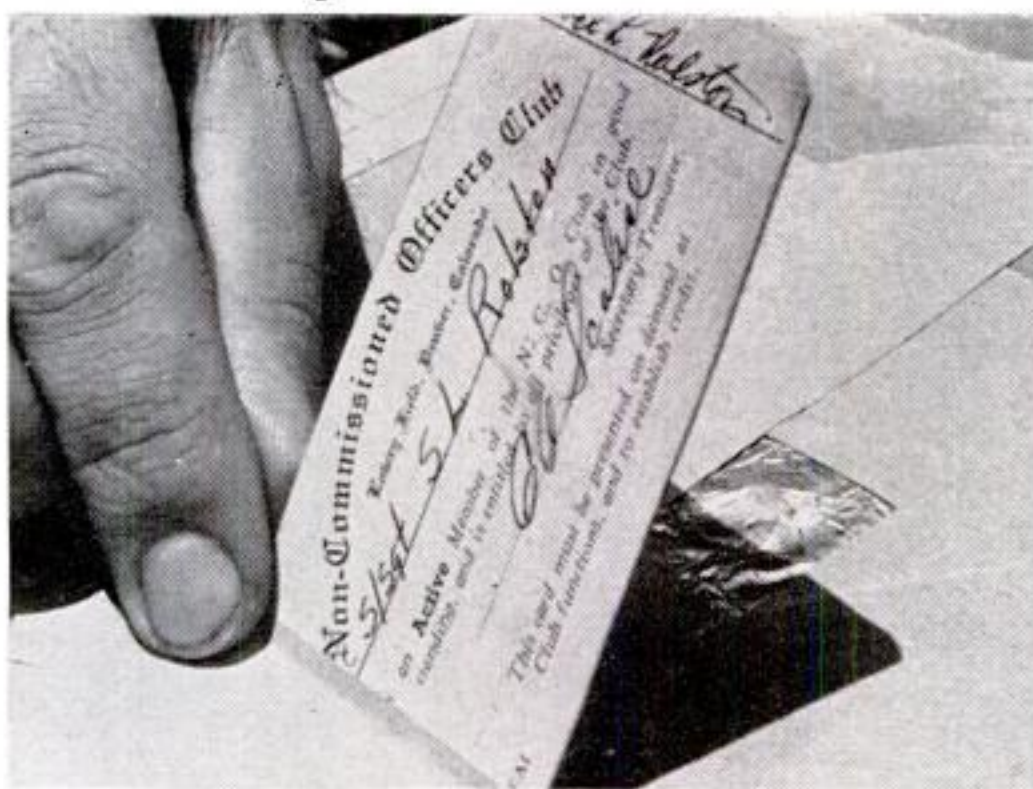 Non-Commissioned Officers Club
Lowry Field, Denver, Colorado
S/Sgt S L
an Active Member of the N. C. O. Club in good
standing, and is entitled to all privileges of the Club.
Secretary Treasurer.
This card must be presented on demand at
Club functions, and to establish credit.